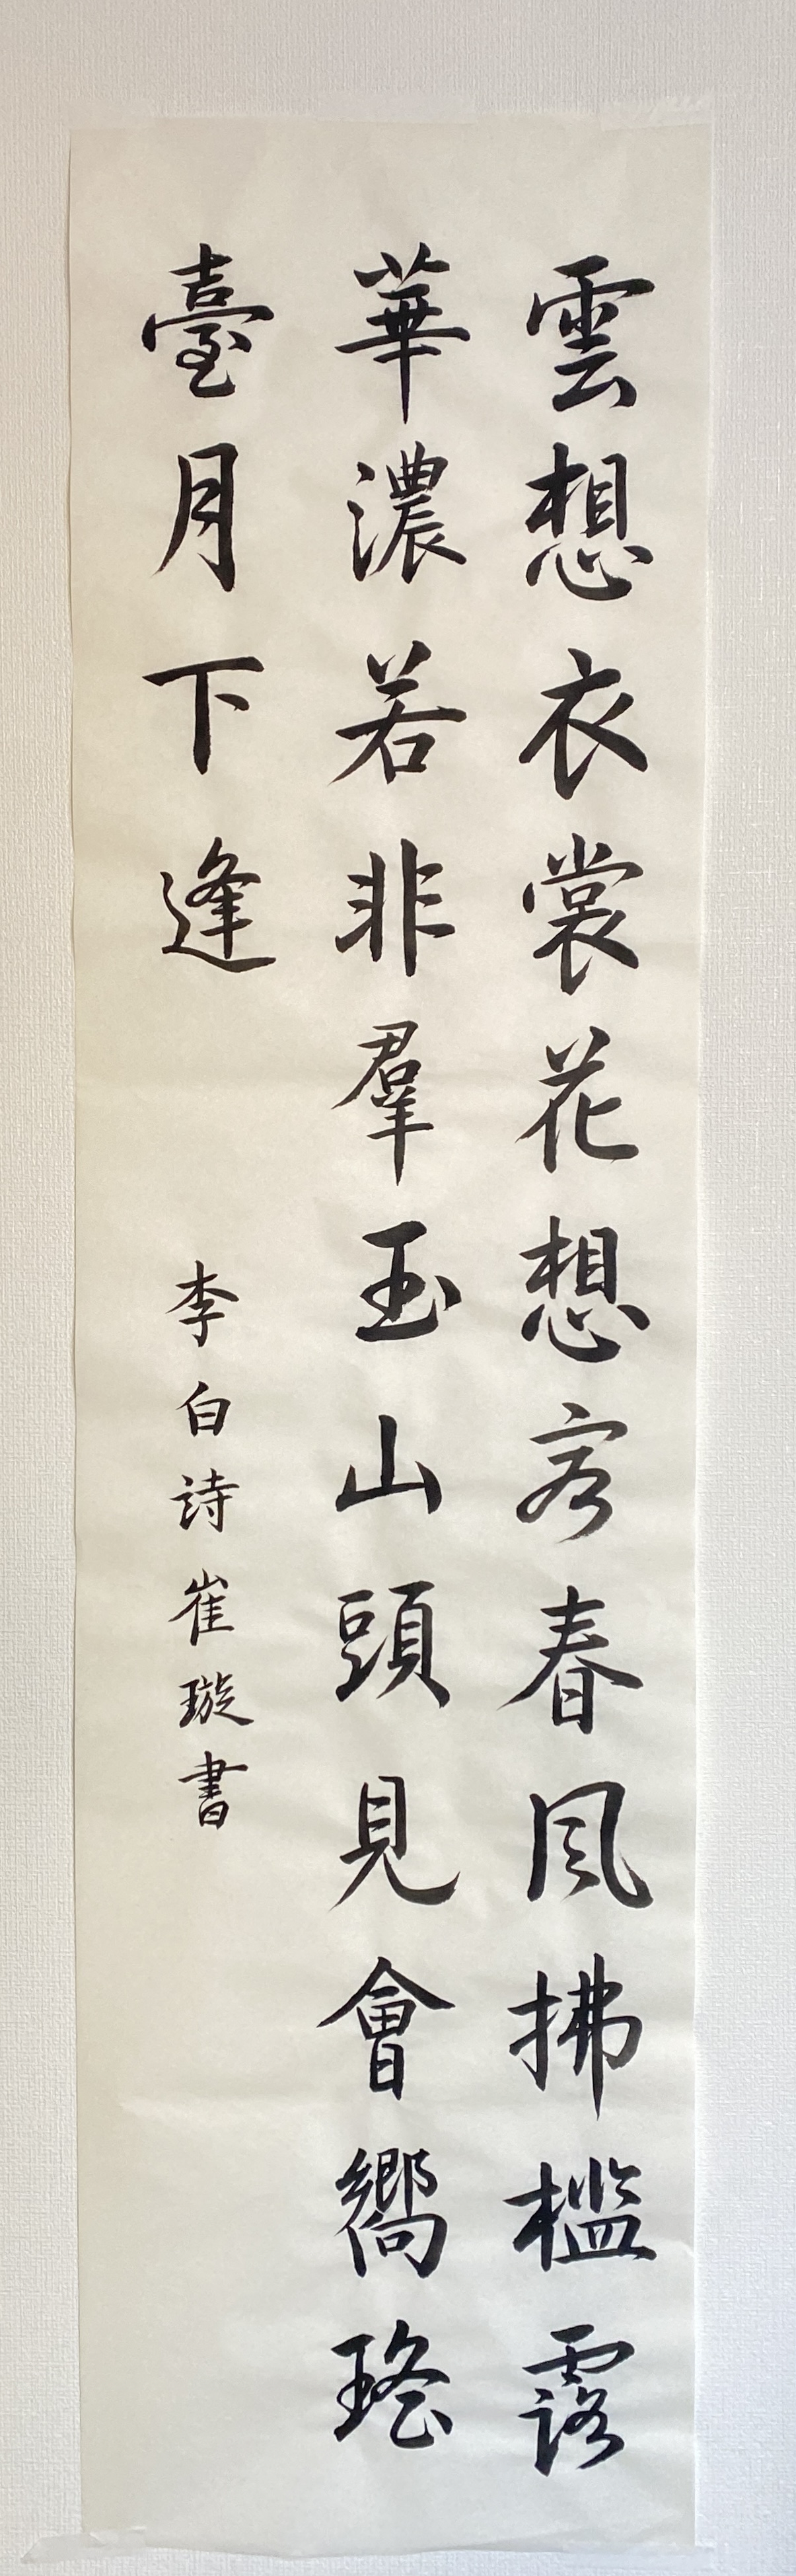 雲想衣裳花想容春風拂檻露
華濃若非羣玉山頭見會嚮瑤
臺月下逢
李白詩崔璇書